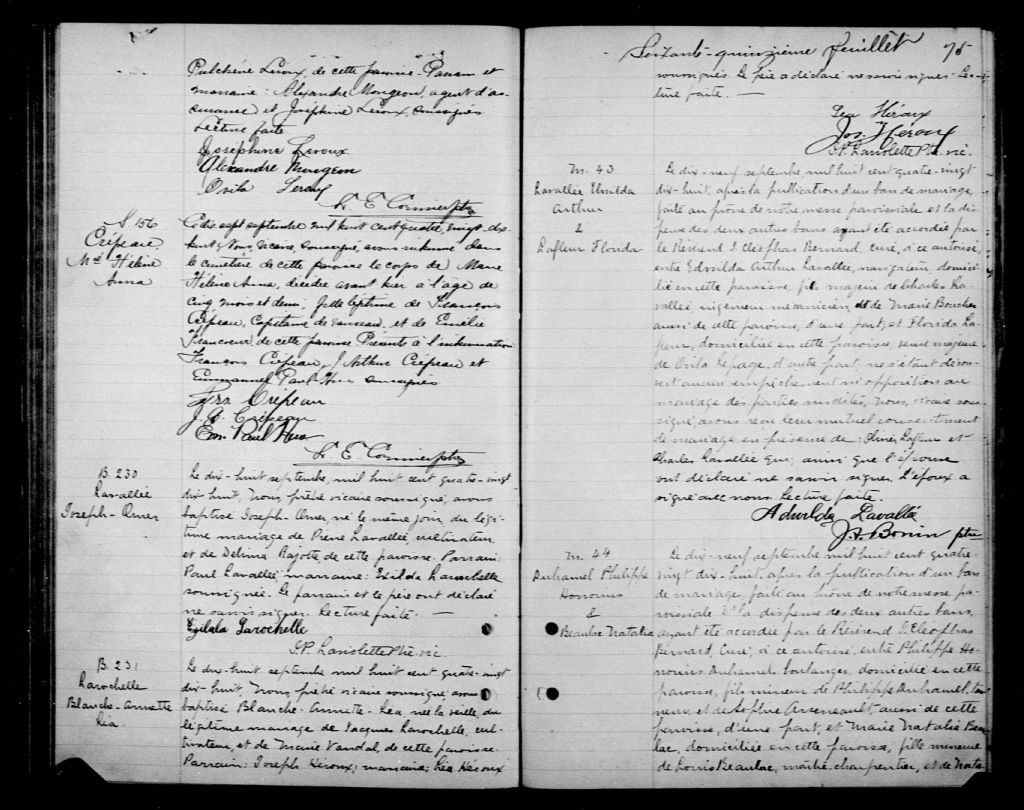 Pulchérie Leroux, de cette paroisse. Parrain et
marraine: Alexandre Mongeon, agent d'as-
surance et Joséphine Leroux, soussignés
Lecture faite
Joséphine Leroux
Alexandre Mongeon
Ovila Leroux
L. E. Cormier ptre
S 156
Crépeau
Me Hélène
Anna
Le dix sept septembre mil huit cent quatre vingt dix
huit, Nous, vicaire soussigné, avons inhumé dans
le cimetière de cette paroisse le corps de Marie
Hélène Anna, décédée avant hier à l'âge de
cinq mois et demi, fille légitime de François
Crépeau, Capitaine de vaisseau, et de Emélie
Francoeur de cette paroisse. Présents à l'inhumation
François Crépeau, J Arthur Crépeau et
Emmanuel Paul Hus soussignés
Frs Crépeau
J. A. Crépeau
Em. Paul Hus
L. E. Cormier ptre
B. 230
Lavallée
Joseph-Omer
Le dix-huit septembre, mil huit cent quatre-vingt
dix-huit, Nous, prêtre vicaire soussigné, avons
baptisé Joseph-Omer, né le même jour, du légi-
time mariage de Pierre Lavallée cultivateur,
et de Delima Rajotte, de cette paroisse. Parrain:
Paul Lavallée; marraine: Exilda Larochelle
soussignée. Le parrain et le père ont déclaré
ne savoir signer. Lecture faite. —
Exilda Larochelle
J.P. Lariolette Ptre. vic.
B. 231
Larochelle
Blanche-Annette
Léa.
Le dix-huit septembre mil huit cent quatre-vingt
dix-huit, Nous, prêtre vicaire soussigné, avons
baptisé Blanche-Annette-Léa, née la veille, du
légitime mariage de Jacques Larochelle, cul-
tivateur, et de Marie Vandal, de cette paroisse.
Parrain: Joseph Héroux; marraine; Léa Héroux
Soixante-quinzième feuillet 75
soussignés. Le père a déclaré ne savoir signer. Lec-
ture faite. —
Léa Héroux
Jos. Héroux
J.P. Lariolette Ptre. vic.
M. 43
Lavallée
Arthur
&
Lafleur Florida
Le dix-neuf septembre, mil huit cent quatre-vingt
dix-huit, après la publication d'un ban de mariage,
faite au prône de notre messe paroissiale et la dis-
pense des deux autres bans ayant été accordée par
le Révérend J. Cléophas Bernard, Curé, à ce autorisé,
entre Arthur Lavallée, navigateur, domici-
lié en cette paroisse, fils majeur de Charles La-
vallée, ingénieur mécanicien, et de Marie Boucher
aussi de cette paroisse, d'une part; et Florida La-
fleur, domiciliée en cette paroisse, veuve majeure
de Ovila Lepage, d'autre part; ne s'étant décou-
vert aucun empêchement ni opposition au
mariage des parties susdites, Nous, vicaire sous-
signé, avons reçu leur mutuel consentement
de mariage en présence de: Olivier Lafleur et
Charles Lavallée qui, ainsi que l'épouse
ont déclaré ne savoir signer. L'époux a
signé avec nous. Lecture faite.
Adwilda Lavallé
J. A. Bonin ptre
M. 44
Duhamel Philippe
Honorius
&
Beaulac Natalia
Le dix-neuf septembre mil huit cent quatre-
vingt dix-huit, après la publication d'un ban
de mariage, faite au prône de notre messe pa-
roissiale & la dispense des deux autres bans,
ayant été accordée par le Révérend J. Cléophas
Bernard, Curé, à ce autorisé, entre Philippe Ho-
norius Duhamel boulanger, domicilié en cette
paroisse, fils mineur de Philippe Duhamel, tan-
neur, et de Sophie Arseneault, aussi de cette
paroisse, d'une part, et Marie Natalia Beau-
lac, domiciliée en cette paroisse, fille mineure
de Louis Beaulac, maître-charpentier, et de Nata-